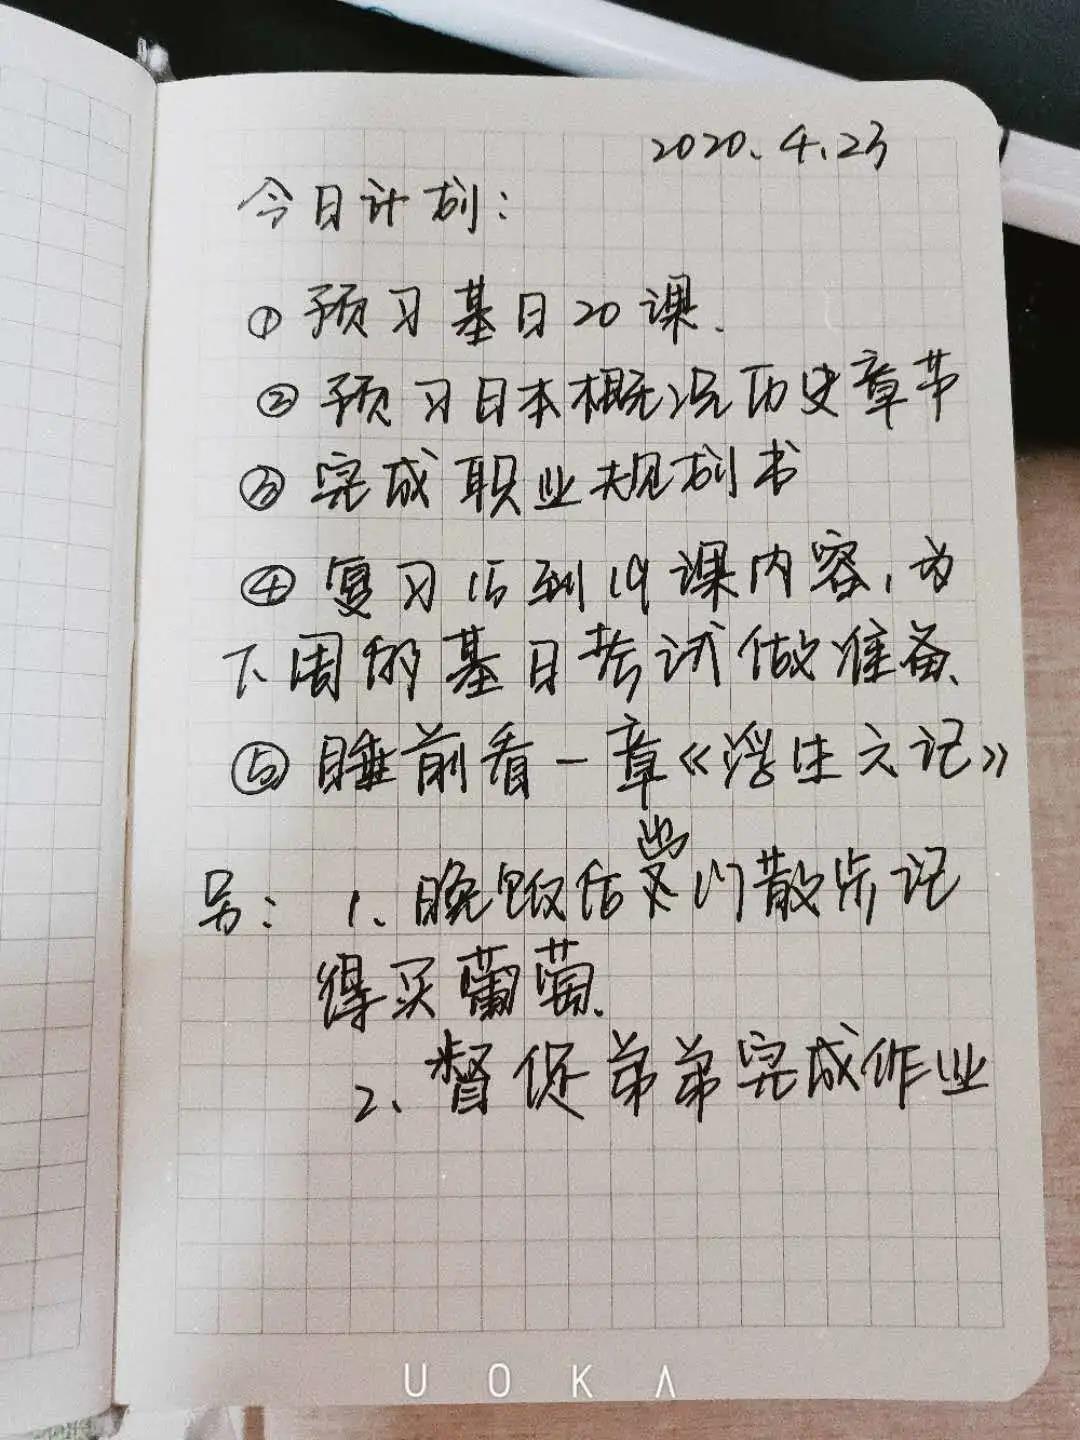 2020.4.23
今日计划：
①预习基日20课.
②预习日本概况历史章节
③完成职业规划书
④复习15到19课内容，为
下周的基日考试做准备、
⑤睡前看一章《浮生六记》
另：1、晚饭后出门散步记
得买葡萄.
2、督促弟弟完成作业
UOKA